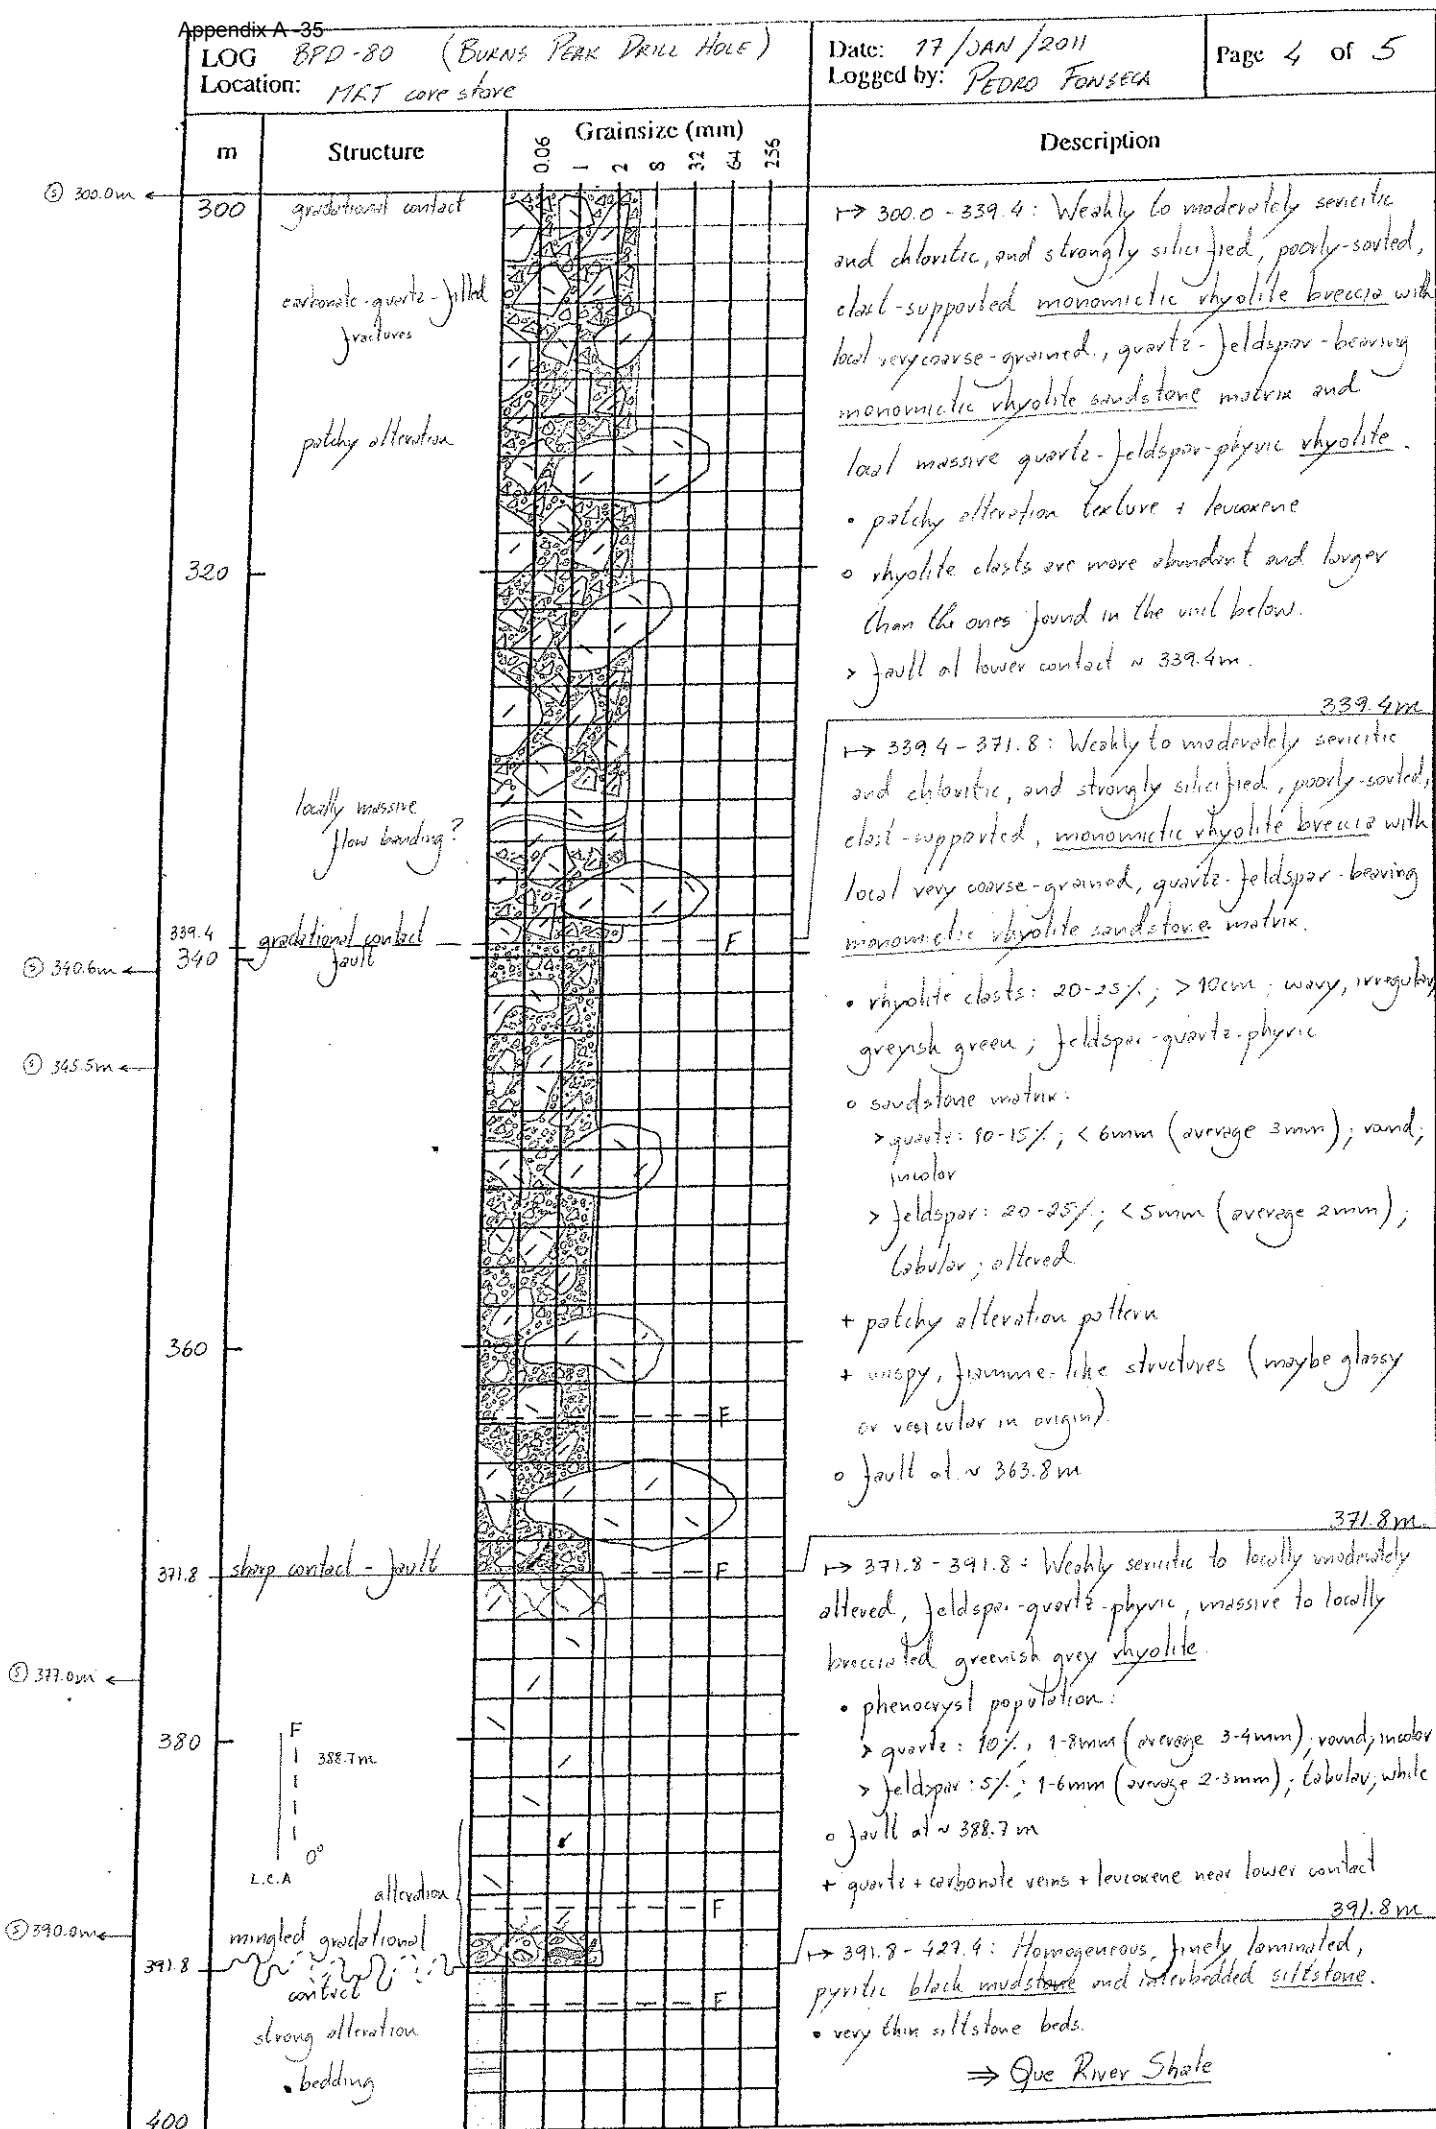 Appendix A -35
LOG BPD-80 (BURNS PEAK DRILL HOLE)
Location: MRT core store
Date: 17/JAN/2011
Logged by: PEDRO FONSECA
Page 4 of 5
m
Structure
Grainsize (mm)
0.06 1 2 8 32 64 256
Description
Ⓢ 300.0m ←
300
gradational contact
carbonate-quartz-filled
fractures
patchy alteration
320
locally massive
flow banding?
339.4
gradational contact
fault
F
340
Ⓢ 340.6m ←
Ⓢ 345.5m ←
360
F
371.8
sharp contact - fault
F
Ⓢ 377.0m ←
380
F
388.7m
0°
L.C.A
alteration
F
Ⓢ 390.0m ←
mingled gradational
391.8
contact
F
strong alteration
• bedding
400
↦ 300.0 - 339.4: Weakly to moderately sericitic
and chloritic, and strongly silicified, poorly-sorted,
clast-supported monomictic rhyolite breccia with
local very coarse-grained, quartz-feldspar-bearing
monomictic rhyolite sandstone matrix and
local massive quartz-feldspar-phyric rhyolite.
• patchy alteration texture + leucoxene
o rhyolite clasts are more abundant and larger
than the ones found in the unit below.
> fault at lower contact ~ 339.4m.
339.4m
↦ 339.4 - 371.8: Weakly to moderately sericitic
and chloritic, and strongly silicified, poorly-sorted,
clast-supported, monomictic rhyolite breccia with
local very coarse-grained, quartz-feldspar-bearing
monomictic rhyolite sandstone matrix.
• rhyolite clasts: 20-25%; > 10cm; wavy, irregular,
greyish green; feldspar-quartz-phyric
o sandstone matrix:
> quartz: 10-15%; < 6mm (average 3mm); round;
incolor
> feldspar: 20-25%; < 5mm (average 2mm);
tabular; altered
+ patchy alteration pattern
+ wispy, fiamme-like structures (maybe glassy
or vesicular in origin).
o fault at ~ 363.8m
371.8m
↦ 371.8 - 391.8: Weakly sericitic to locally moderately
altered, feldspar-quartz-phyric, massive to locally
brecciated greenish grey rhyolite.
• phenocryst population:
> quartz: 10%; 1-8mm (average 3-4mm); round; incolor
> feldspar: 5%; 1-6mm (average 2-3mm); tabular; white
o fault at ~ 388.7m
+ quartz + carbonate veins + leucoxene near lower contact
391.8m
↦ 391.8 - 427.4: Homogeneous, finely laminated,
pyritic black mudstone and interbedded siltstone.
• very thin siltstone beds.
⇒ Que River Shale